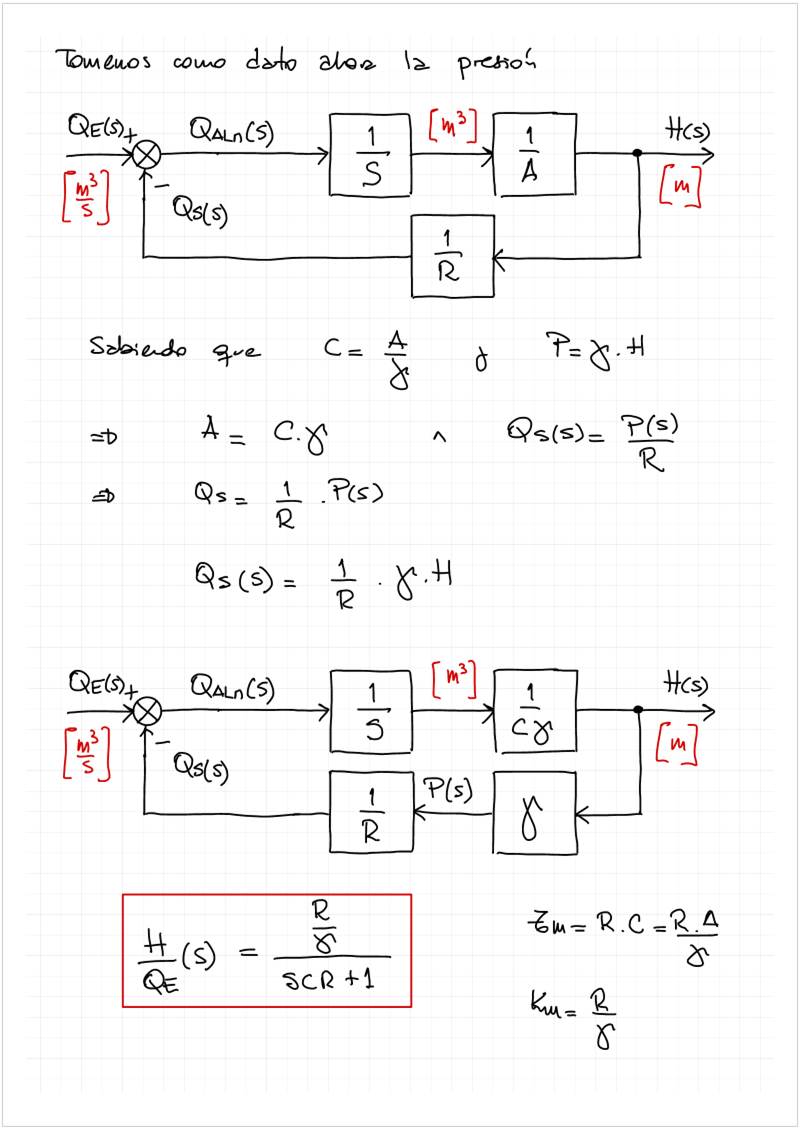 Tomenos como dato ahora la presión
QE(s) + QALM(s) 1/S [m³] 1/A H(s)
[m³/s] − QS(s) [m]
1/R
Sabiendo que C = A/γ y P = γ . H
⇒ A = C . γ ^ QS(s) = P(s)/R
⇒ QS = 1/R . P(s)
QS(s) = 1/R . γ . H
QE(s) + QALM(s) 1/S [m³] 1/Cγ H(s)
[m³/s] − QS(s) [m]
1/R P(s) γ
H/QE (s) = R/γ / SCR + 1
τm = R . C = R . A/γ
Km = R/γ